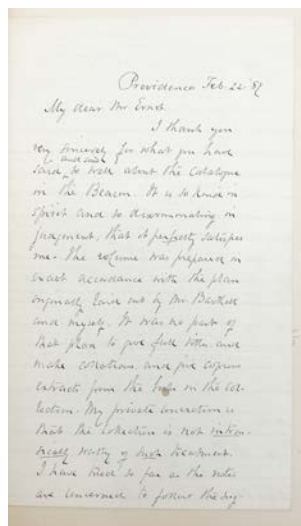 Providence Feb. 22 '87
My dear Mr Ernst
I thank you
very sincerely for what you have
said and said so well about the Catalogue
in the Beacon. It is so kind in
spirit and so discriminating in
judgment, that it perfectly satisfies
me. The volume was prepared in
exact accordance with the plan
originally laid out by Mr. Bartlett
and myself. It was no part of
that plan to give full titles and
make collations, and give copious
extracts from the books in the col-
lection. My private conviction is
that the collection is not intrin-
sically worthy of such treatment.
I have tried so far as the notes
are concerned to follow the